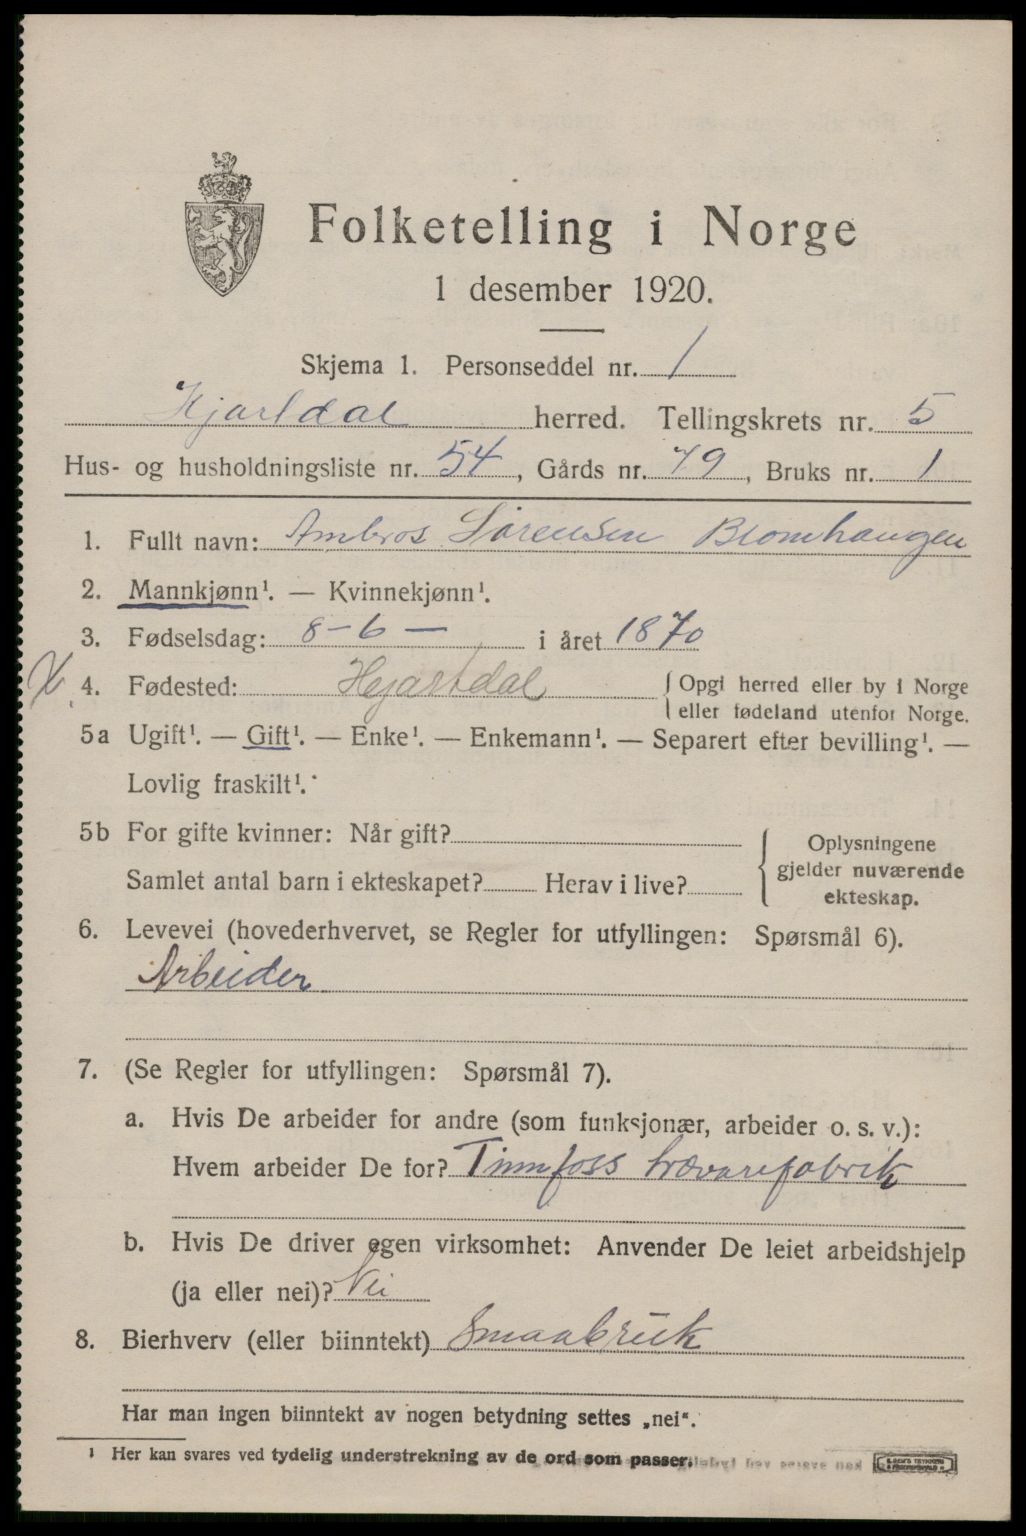 Folketelling i Norge
1 desember 1920.
Skjema 1. Personseddel nr. 1
Hjartdal herred. Tellingskrets nr. 5
Hus- og husholdningsliste nr. 54, Gårds nr. 79, Bruks nr. 1
1. Fullt navn: Ambros Sørensen Blomhaugen
2. Mannkjønn¹. — Kvinnekjønn¹.
3. Fødselsdag: 8-6- i året 1870
X 4. Fødested: Hjartdal { Opgi herred eller by i Norge
eller fødeland utenfor Norge.
5a Ugift¹. — Gift¹. — Enke¹. — Enkemann¹. — Separert efter bevilling¹. —
Lovlig fraskilt¹.
5b For gifte kvinner: Når gift?
Samlet antal barn i ekteskapet? Herav i live?
{ Oplysningene
gjelder nuværende
ekteskap.
6. Levevei (hovederhvervet, se Regler for utfyllingen: Spørsmål 6).
Arbeider
7. (Se Regler for utfyllingen: Spørsmål 7).
a. Hvis De arbeider for andre (som funksjonær, arbeider o. s. v.):
Hvem arbeider De for? Tinnfoss trævarefabrik
b. Hvis De driver egen virksomhet: Anvender De leiet arbeidshjelp
(ja eller nei)? Nei
8. Bierhverv (eller biinntekt) Smaabruk
Har man ingen biinntekt av nogen betydning settes „nei“.
¹ Her kan svares ved tydelig understrekning av de ord som passer.